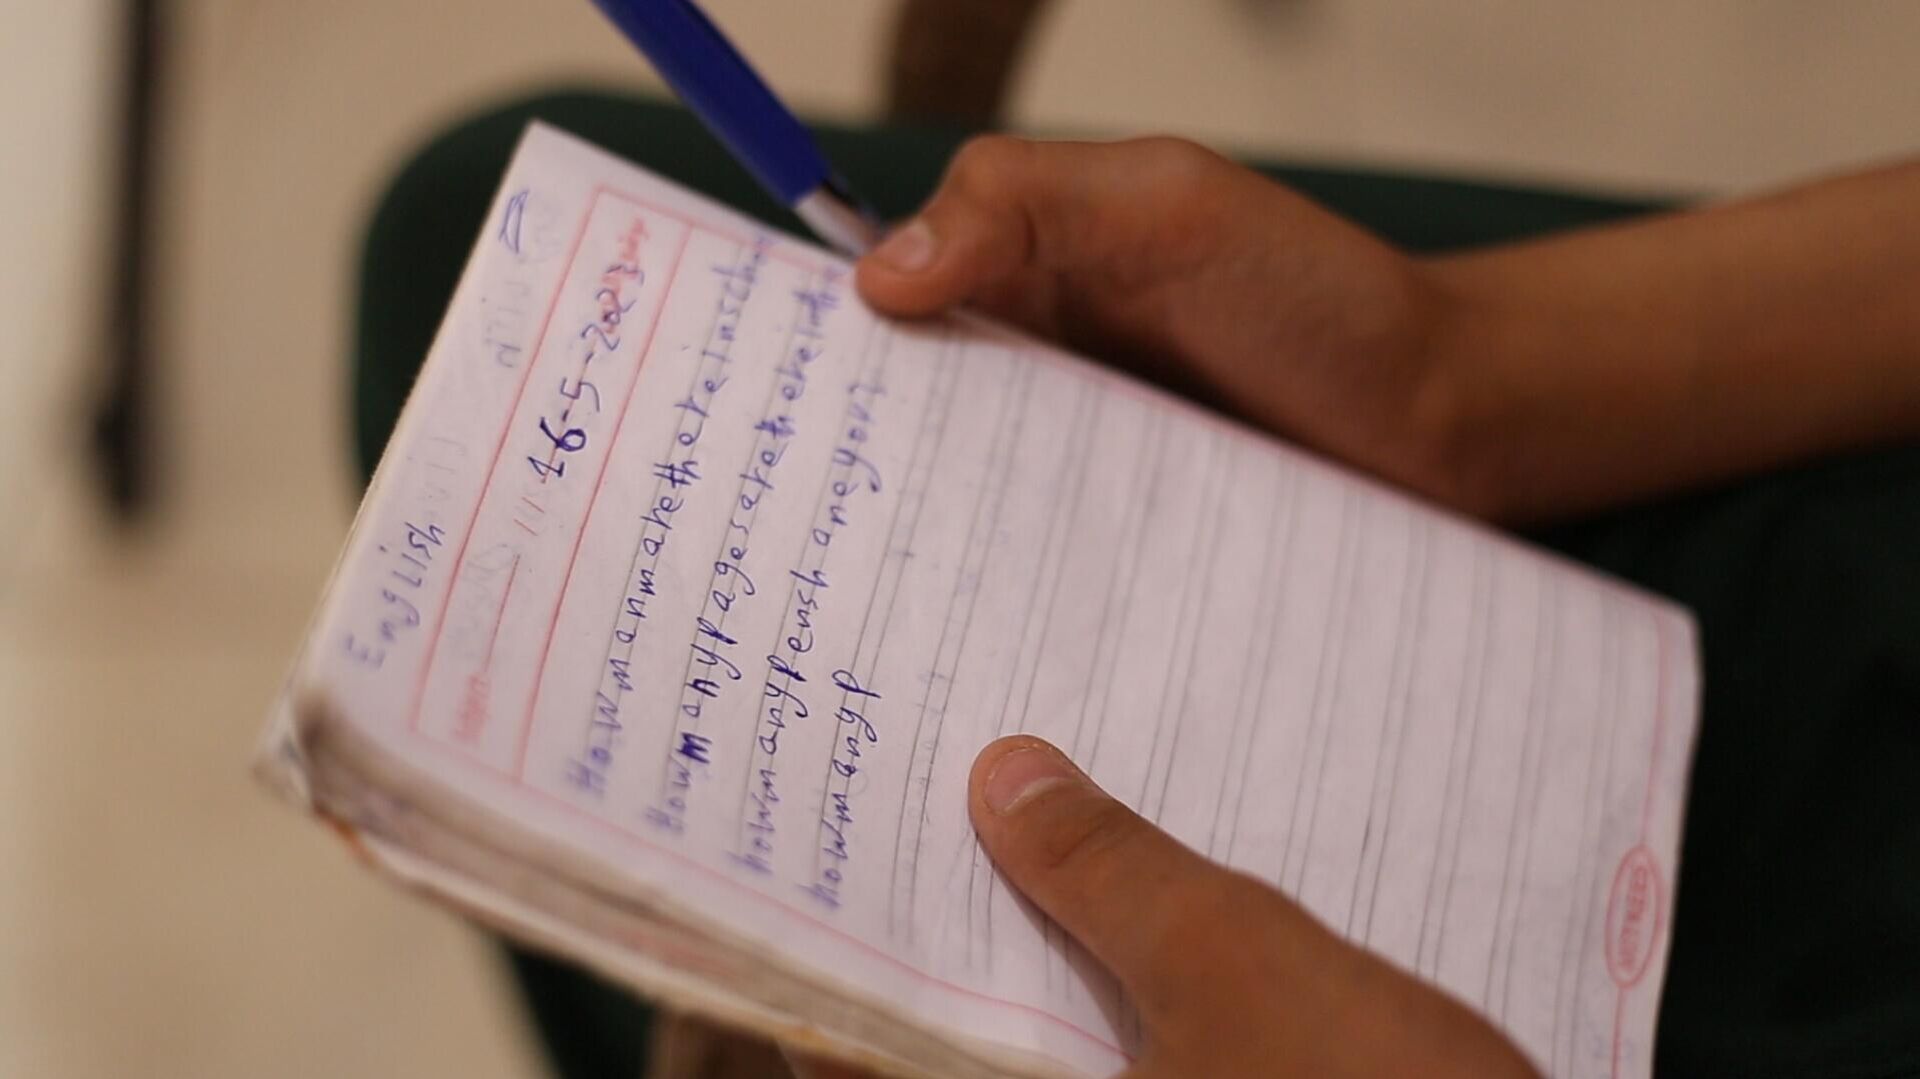 English
16-5-2023
How man mare there in sch
How many pages are there in the
how many pens h ane you?
how many p
CENTURY